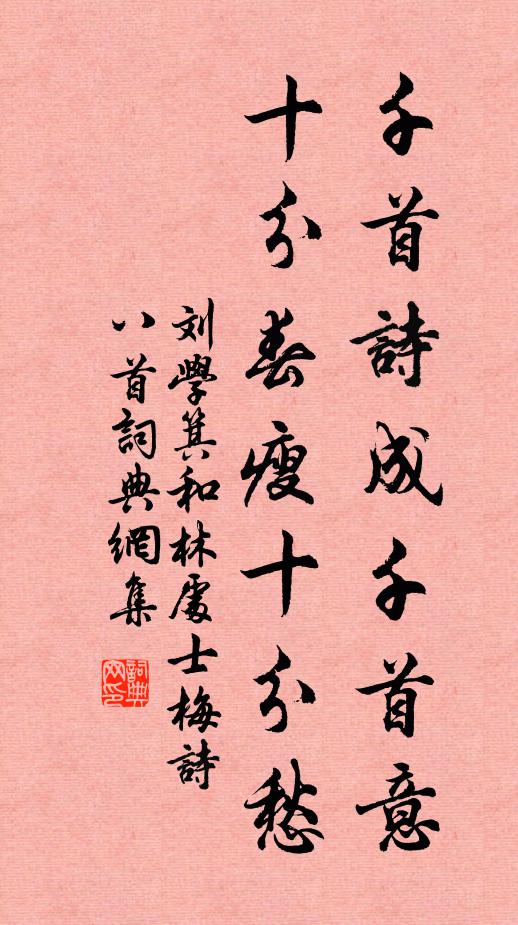 千首詩成千首意
十分春瘦十分愁
刘學箕和林處士梅詩
八首詞典網集
詞典网印